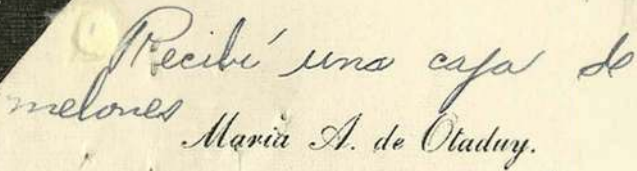 Recibí una caja de
melones
Maria A. de Otaduy.